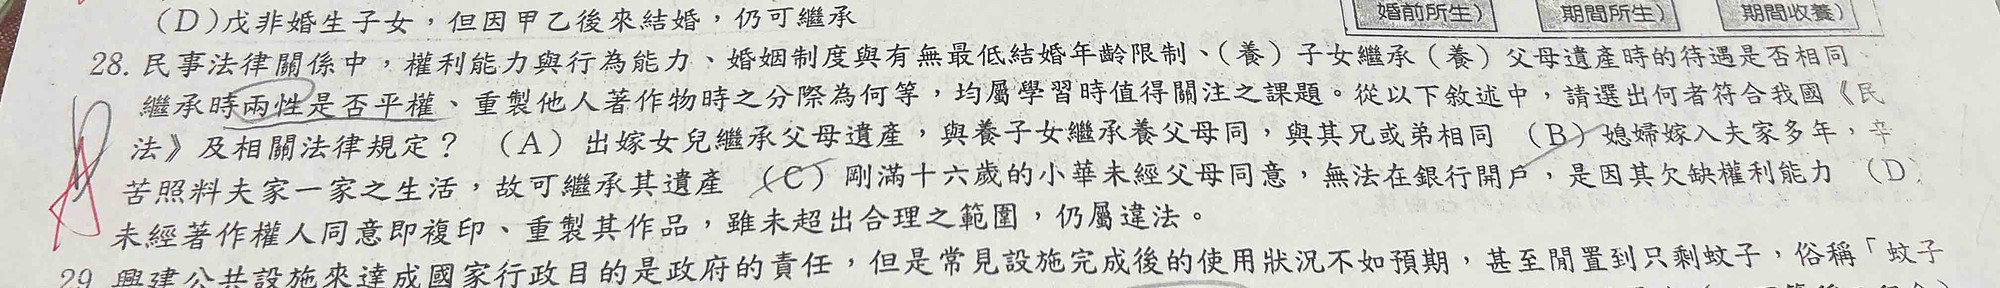 (D)戊非婚生子女，但因甲乙後來結婚，仍可繼承
婚前所生)
期間所生)
期間收養)
28. 民事法律關係中，權利能力與行為能力、婚姻制度與有無最低結婚年齡限制、(養)子女繼承(養)父母遺產時的待遇是否相同、
繼承時兩性是否平權、重製他人著作物時之分際為何等，均屬學習時值得關注之課題。從以下敘述中，請選出何者符合我國《民
法》及相關法律規定？ (A)出嫁女兒繼承父母遺產，與養子女繼承養父母同，與其兄或弟相同 (B)媳婦嫁入夫家多年，辛
苦照料夫家一家之生活，故可繼承其遺產 (C)剛滿十六歲的小華未經父母同意，無法在銀行開戶，是因其欠缺權利能力 (D)
未經著作權人同意即複印、重製其作品，雖未超出合理之範圍，仍屬違法。
29 興建公共設施來達成國家行政目的是政府的責任，但是常見設施完成後的使用狀況不如預期，甚至閒置到只剩蚊子，俗稱「蚊子